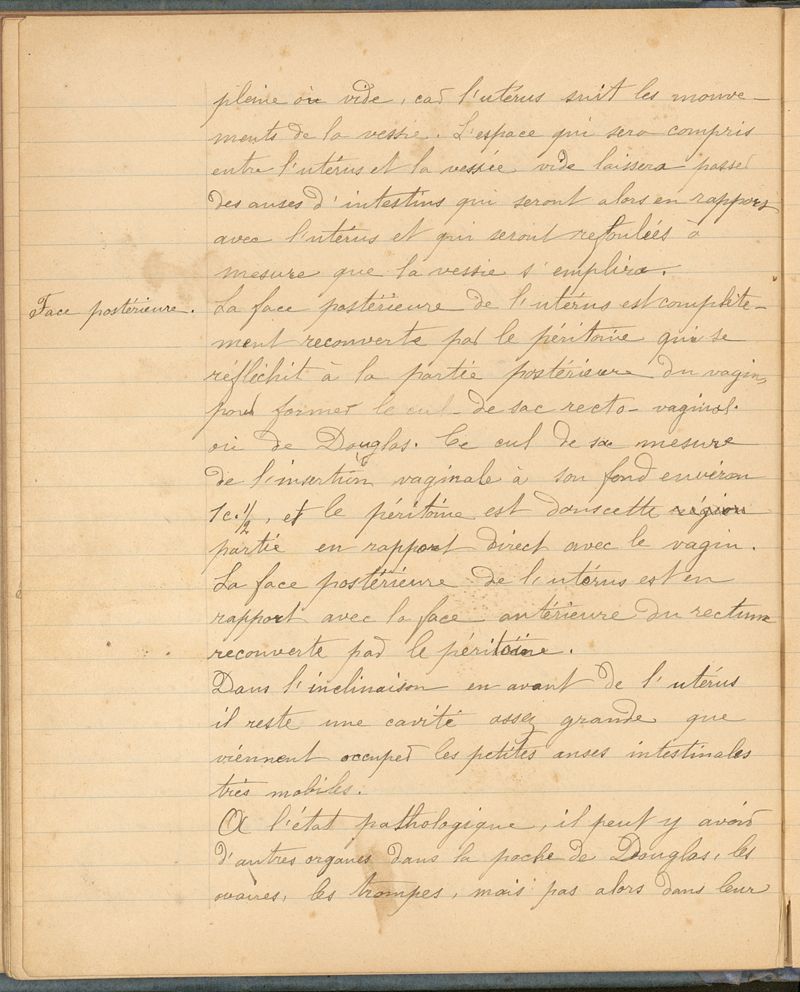 pleine ou vide, car l'utérus suit les mouve-
ments de la vessie. L'espace qui sera compris
entre l'utérus et la vessie vide laissera passer
des anses d'intestins qui seront alors en rapport
avec l'utérus et qui seront refoulées à
mesure que la vessie s'emplira.
Face postérieure. La face postérieure de l'utérus est complète-
ment recouverte par le péritoine qui se
réfléchit à la partie postérieure du vagin,
pour former le cul-de sac recto-vaginal.
ou de Douglas. Ce cul de sac mesure
de l'insertion vaginale à son fond environ
1c. 1/2, et le péritoine est dans cette région
partie en rapport direct avec le vagin.
La face postérieure de l'utérus est en
rapport avec la face antérieure du rectum
recouverte par le péritoine.
Dans l'inclinaison en avant de l'utérus
il reste une cavité assez grande que
viennent occuper les petites anses intestinales
très mobiles.
A l'état pathologique, il peut y avoir
d'autres organes dans la poche de Douglas, les
ovaires, les trompes, mais pas alors dans leur